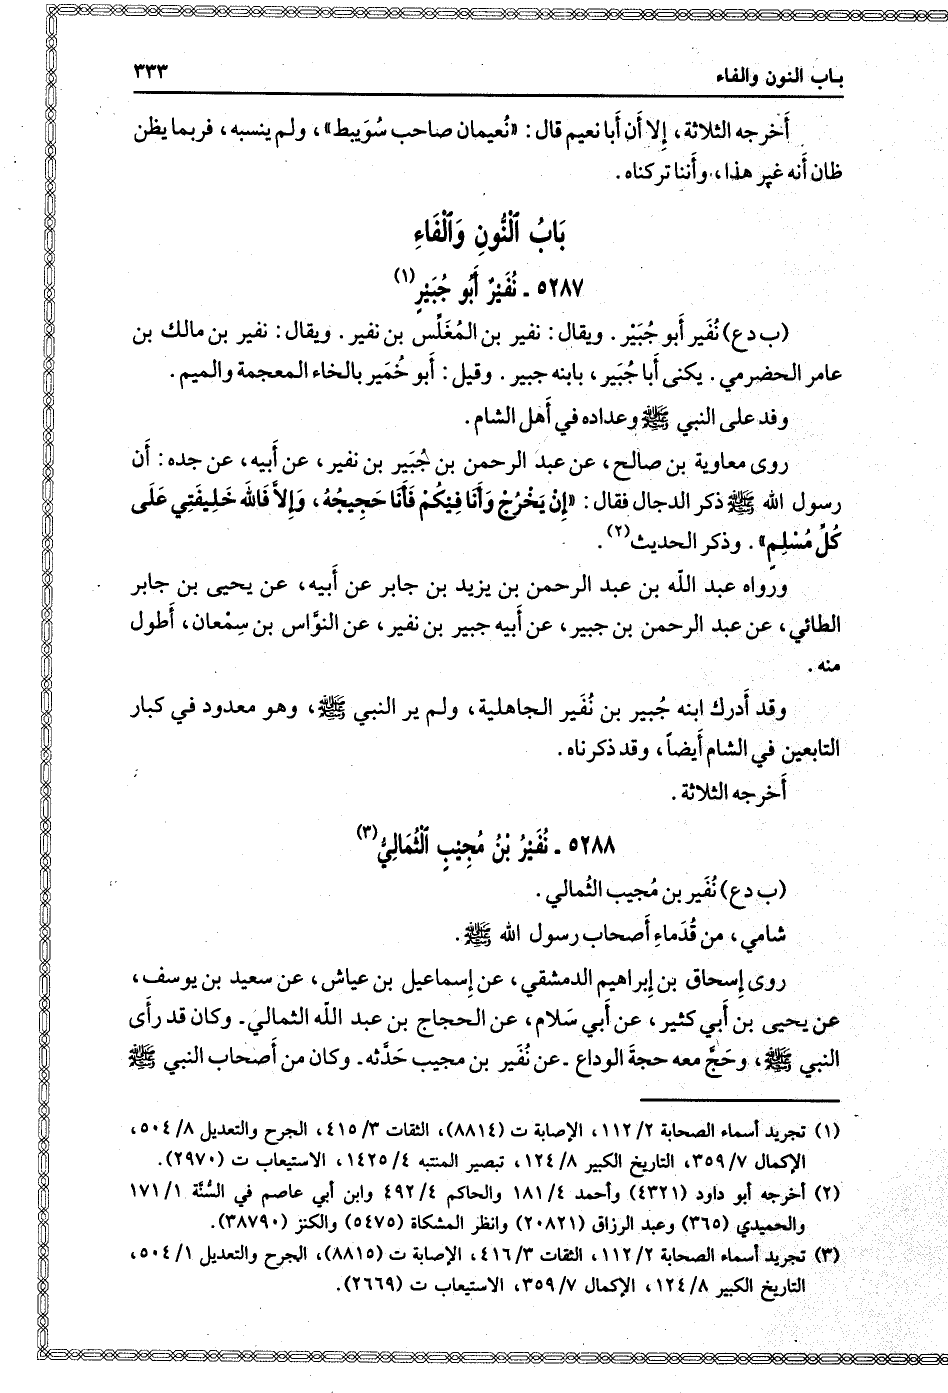 باب النون والفاء ٣٣٣
أخرجه الثلاثة، إلا أن أبا نعيم قال: «نُعيمان صاحب سُوَيبط»، ولم ينسبه، فربما يظن
ظان أنه غير هذا، وأننا تركناه.
بَابُ ٱلْنُّونِ وَٱلْفَاءِ
٥٢٨٧ ـ نُفَيْرٌ أَبُو جُبَيْرٍ(١)
(ب د ع) نُفَير أبو جُبَيْر. ويقال: نفير بن المُغَلِّس بن نفير. ويقال: نفير بن مالك بن
عامر الحضرمي. يكنى أبا جُبَير، بابنه جبير. وقيل: أبو خُمَير بالخاء المعجمة والميم.
وفد على النبي ﷺ وعداده في أهل الشام.
روى معاوية بن صالح، عن عبد الرحمن بن جُبَير بن نفير، عن أبيه، عن جده: أن
رسول الله ﷺ ذكر الدجال فقال: «إِنْ يَخْرُجْ وَأَنَا فِيْكُمْ فَأَنَا حَجِيجُهُ، وَإِلاَّ فَاللَّه خَلِيفَتِي عَلَى
كُلِّ مُسْلِمٍ». وذكر الحديث(٢).
ورواه عبد اللّه بن عبد الرحمن بن يزيد بن جابر عن أبيه، عن يحيى بن جابر
الطائي، عن عبد الرحمن بن جبير، عن أبيه جبير بن نفير، عن النوَّاس بن سِمْعان، أطول
منه.
وقد أدرك ابنه جُبير بن نُفَير الجاهلية، ولم ير النبي ﷺ، وهو معدود في كبار
التابعين في الشام أيضاً، وقد ذكرناه.
أخرجه الثلاثة.
٥٢٨٨ ـ نُفَيْرُ بْنُ مُجِيْبٍ ٱلْثُمَالِيُّ(٣)
(ب د ع) نُفَير بن مُجيب الثُمالي.
شامي، من قُدَماءِ أصحاب رسول الله ﷺ.
روى إسحاق بن إبراهيم الدمشقي، عن إسماعيل بن عياش، عن سعيد بن يوسف،
عن يحيى بن أبي كثير، عن أبي سَلام، عن الحجاج بن عبد اللّه الثمالي ـ وكان قد رأى
النبي ﷺ، وحَجَّ معه حجةَ الوداع ـ عن نُفَير بن مجيب حَدَّثه ـ وكان من أصحاب النبي ﷺ
(١) تجريد أسماء الصحابة ٢/ ١١٢، الإصابة ت (٨٨١٤)، الثقات ٣/ ٤١٥، الجرح والتعديل ٨/ ٥٠٤،
الإكمال ٧/ ٣٥٩، التاريخ الكبير ٨/ ١٢٤، تبصير المنتبه ٤/ ١٤٢٥، الاستيعاب ت (٢٩٧٠).
(٢) أخرجه أبو داود (٤٣٢١) وأحمد ٤/ ١٨١ والحاكم ٤/ ٤٩٢ وابن أبي عاصم في السُّنَّة ١/ ١٧١
والحميدي (٣٦٥) وعبد الرزاق (٢٠٨٢١) وانظر المشكاة (٥٤٧٥) والكنز (٣٨٧٩٠).
(٣) تجريد أسماء الصحابة ٢/ ١١٢، الثقات ٣/ ٤١٦، الإصابة ت (٨٨١٥)، الجرح والتعديل ١/ ٥٠٤،
التاريخ الكبير ٨/ ١٢٤، الإكمال ٧/ ٣٥٩، الاستيعاب ت (٢٦٦٩).